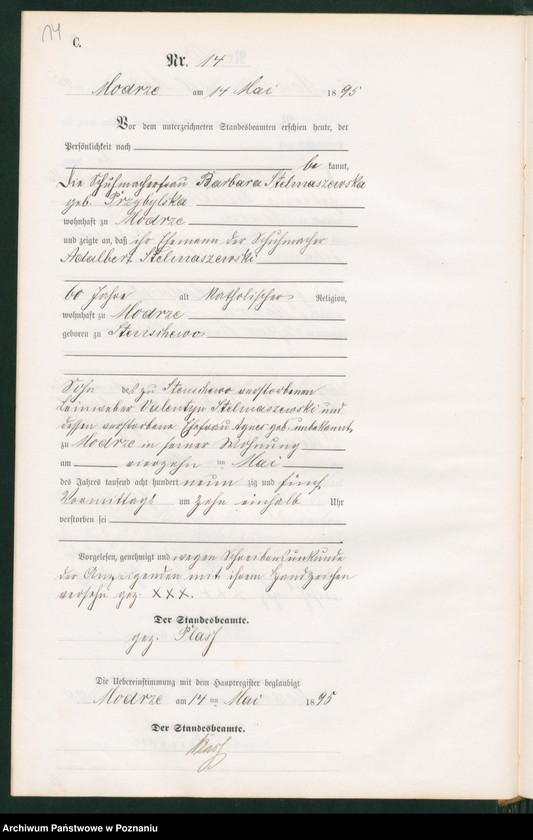 14
C.
Nr. 14
Modrze am 14 Mai 1895
Vor dem unterzeichneten Standesbeamten erschien heute, der
Persönlichkeit nach
be kannt,
Die Schuhmacherfrau Barbara Stelmaszewska
geb. Przybylska
wohnhaft zu Modrze
und zeigte an, daß ihr Ehemann der Schuhmacher
Adalbert Stelmaszewski
60 Jahre alt katholischer Religion,
wohnhaft zu Modrze
geboren zu Stenschewo
Sohn des zu Stenschewo verstorbenen
Leinweber Valentyn Stelmaszewski und
dessen verstorbene Ehefrau Agnes geb. unbekannt
zu Modrze in seiner Wohnung
am vierzehn ten Mai
des Jahres tausend acht hundert neun zig und fünf
Vormittags um zehn einhalb Uhr
verstorben sei
Vorgelesen, genehmigt und wegen Schreibensunkunde
der Anzeigenden mit ihrem Handzeichen
versehn gez. XXX.
Der Standesbeamte.
gez.
Die Uebereinstimmung mit dem Hauptregister beglaubigt
Modrze am 14 ten Mai 1895
Der Standesbeamte.
Archiwum Państwowe w Poznaniu